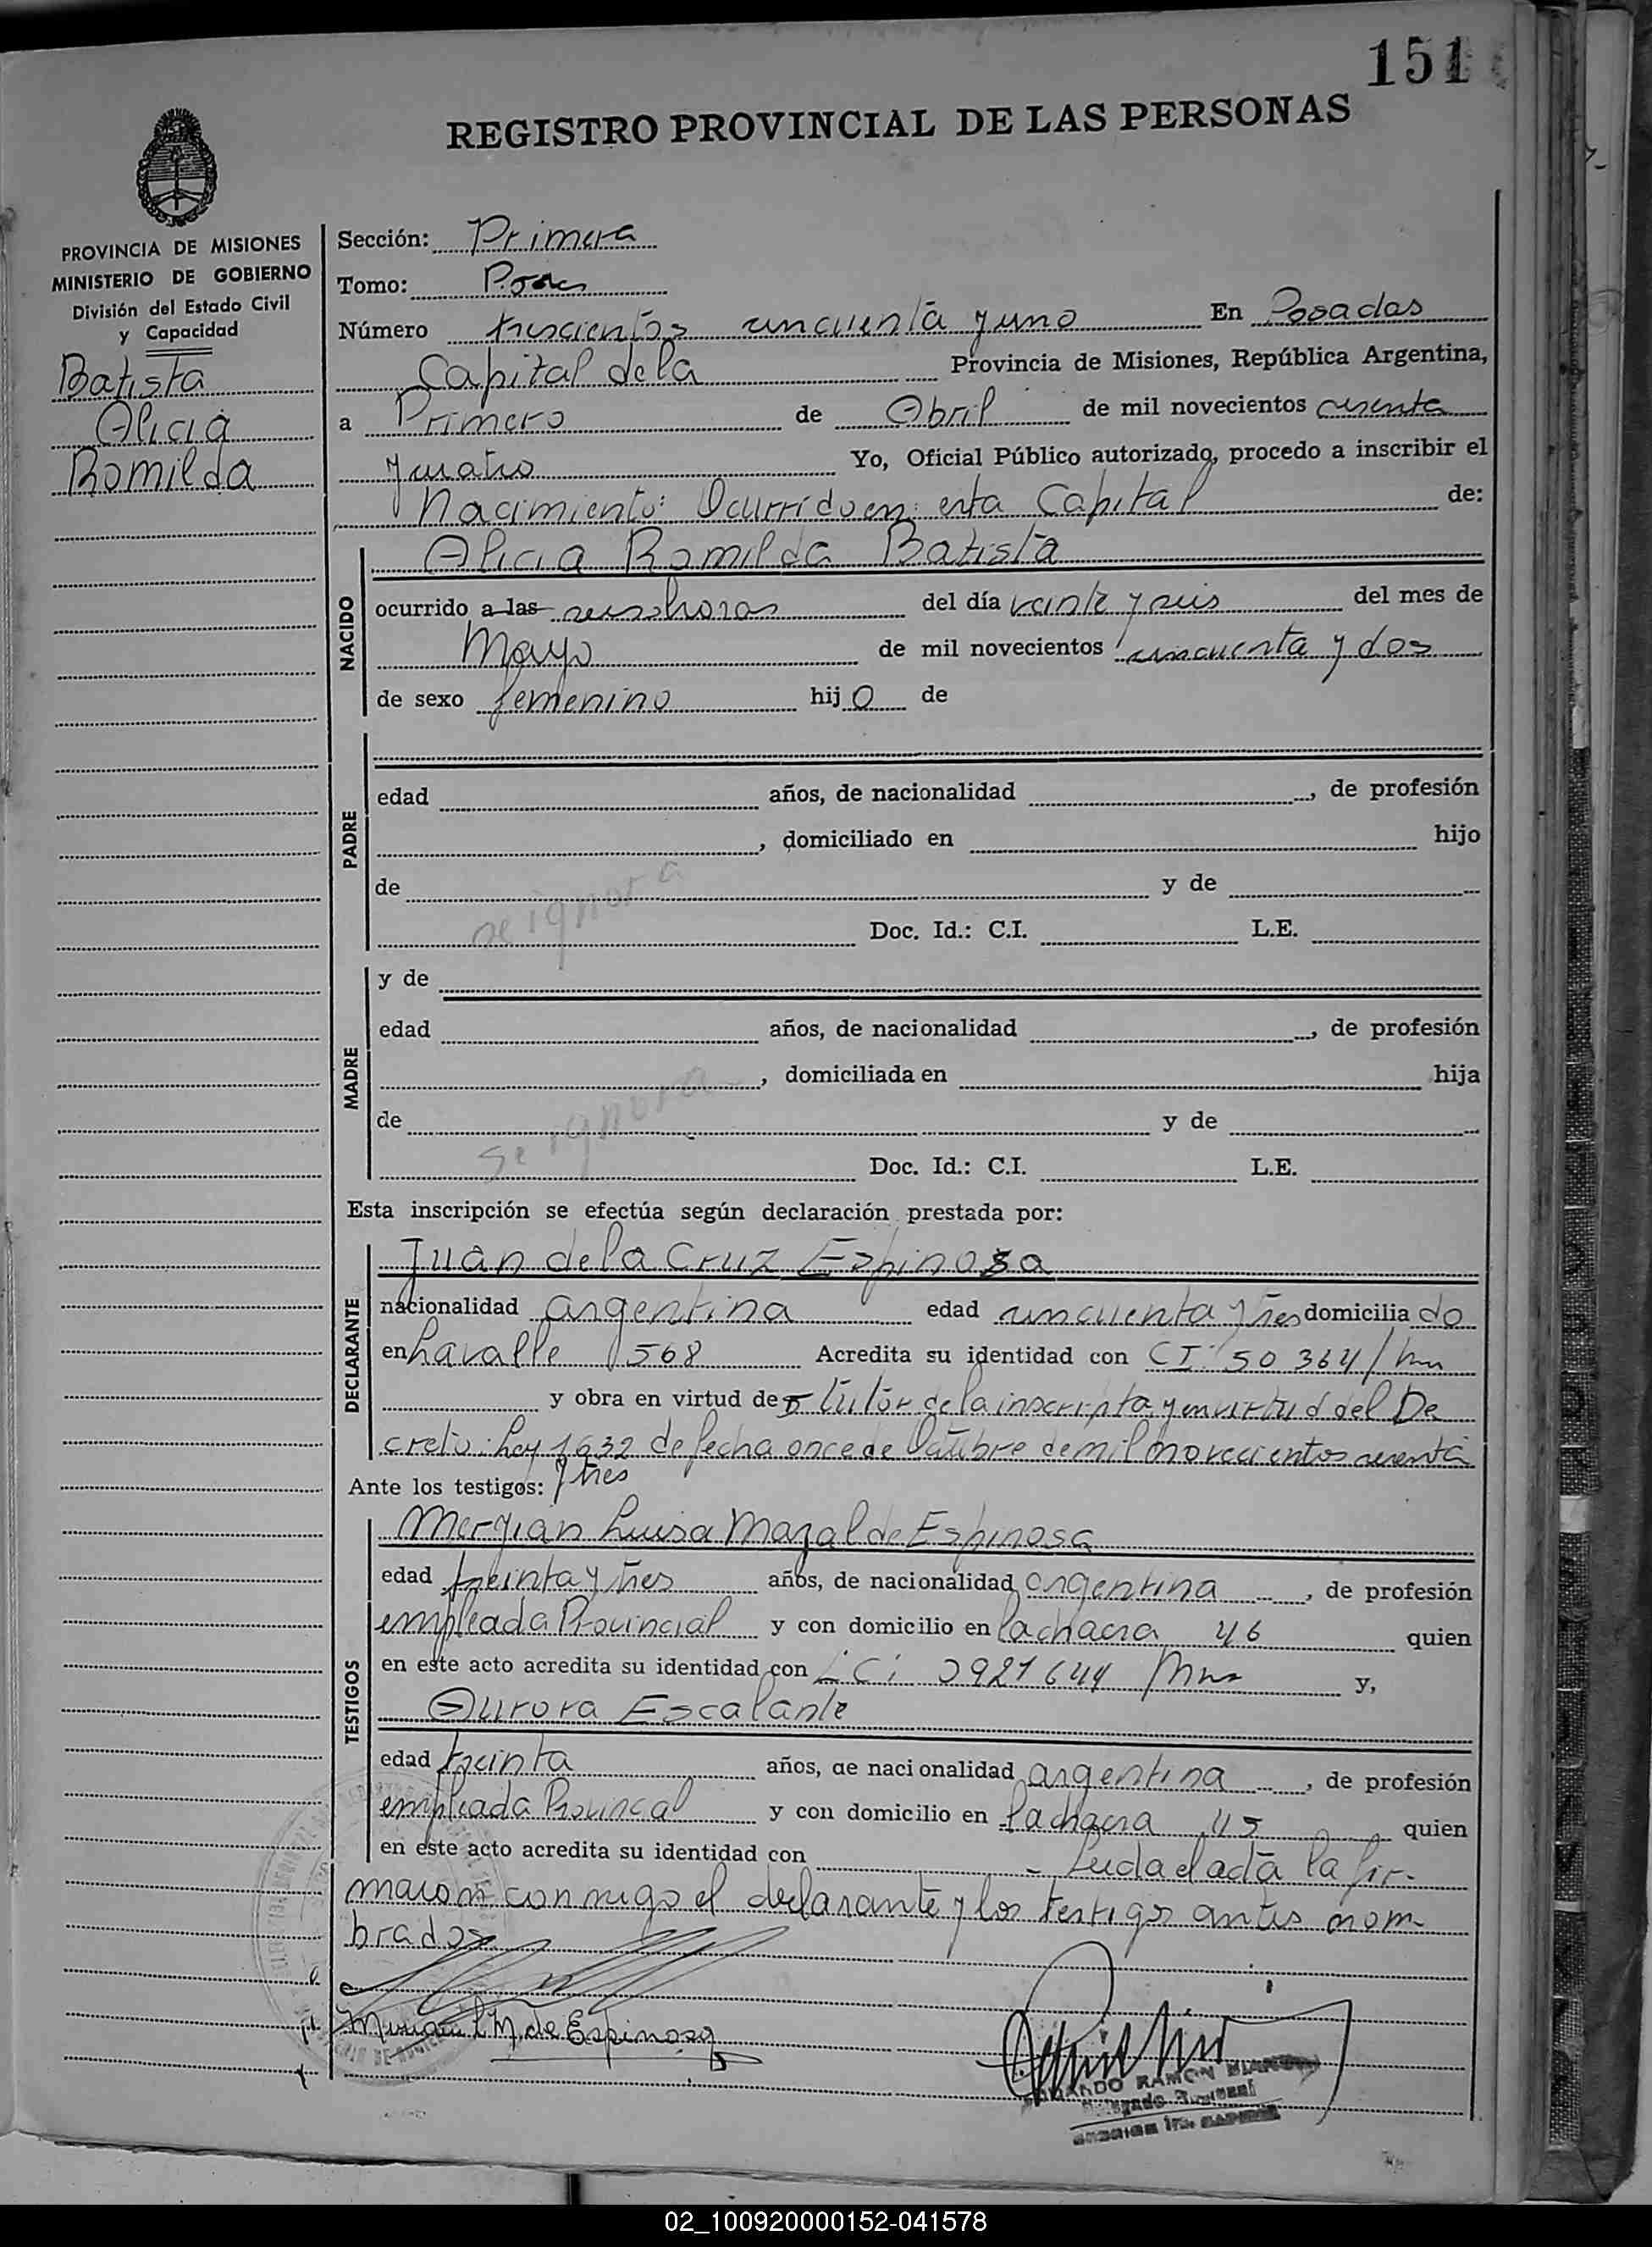 151
REGISTRO PROVINCIAL DE LAS PERSONAS
PROVINCIA DE MISIONES
MINISTERIO DE GOBIERNO
División del Estado Civil
y Capacidad
Batista
Alicia
Romilda
Sección: Primera
Tomo:
Número trescientos cincuenta y uno En Posadas
Capital de la Provincia de Misiones, República Argentina,
a Primero de Abril de mil novecientos sesenta
y cuatro Yo, Oficial Público autorizado, procedo a inscribir el
Nacimiento: Ocurrido en esta Capital de:
NACIDO
Alicia Romilda Batista
ocurrido a las seis horas del día veinte y seis del mes de
Mayo de mil novecientos cincuenta y dos
de sexo femenino hij o de
PADRE
edad años, de nacionalidad , de profesión
, domiciliado en hijo
de y de
se ignora
Doc. Id.: C.I. L.E.
MADRE
y de
edad años, de nacionalidad , de profesión
, domiciliada en hija
de y de
se ignora
Doc. Id.: C.I. L.E.
Esta inscripción se efectúa según declaración prestada por:
DECLARANTE
Juan de la Cruz Espinosa
nacionalidad argentina edad cincuenta y tres domicilia do
en Lavalle 568 Acredita su identidad con CI 50 364
y obra en virtud de tutor de la inscripta y en virtud del De
creto Ley 1632 de fecha once de Octubre de mil novecientos sesenta
y tres
Ante los testigos:
TESTIGOS
Meryian Luisa Mazal de Espinosa
edad treinta y tres años, de nacionalidad argentina , de profesión
empleada Provincial y con domicilio en la chacra 46 quien
en este acto acredita su identidad con 2921644 y,
Aurora Escalante
edad treinta años, de nacionalidad argentina , de profesión
empleada Provincal y con domicilio en la chacra 45 quien
en este acto acredita su identidad con Leida el acta la fir-
maron conmigo el declarante y los testigos antes nom
brados
Miriam L M. de Espinosa
RAMON
02_100920000152-041578